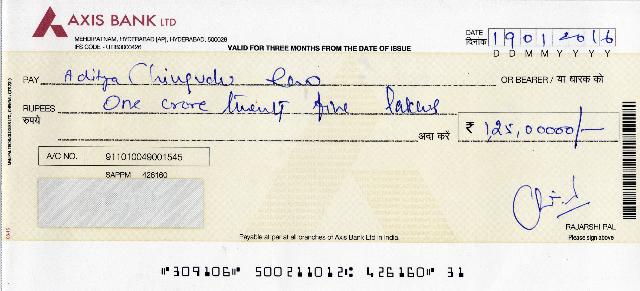 AXIS BANK LTD
MEHDIPATNAM, HYDERABAD [AP], HYDERABAD, 500028
IFS CODE - UTIB0000426
VALID FOR THREE MONTHS FROM THE DATE OF ISSUE
DATE दिनांक 19012016
D D M M Y Y Y Y
PAY Aditya Rao OR BEARER / या धारक को
RUPEES रुपये One crore twenty five lakhs
अदा करें ₹ 125,00000/-
A/C NO. 911010049001545
SAPPM 426160
RAJARSHI PAL
Please sign above
Payable at par at all branches of Axis Bank Ltd in India.
⑈309106⑈ 500211012⑆ 426160⑈ 31